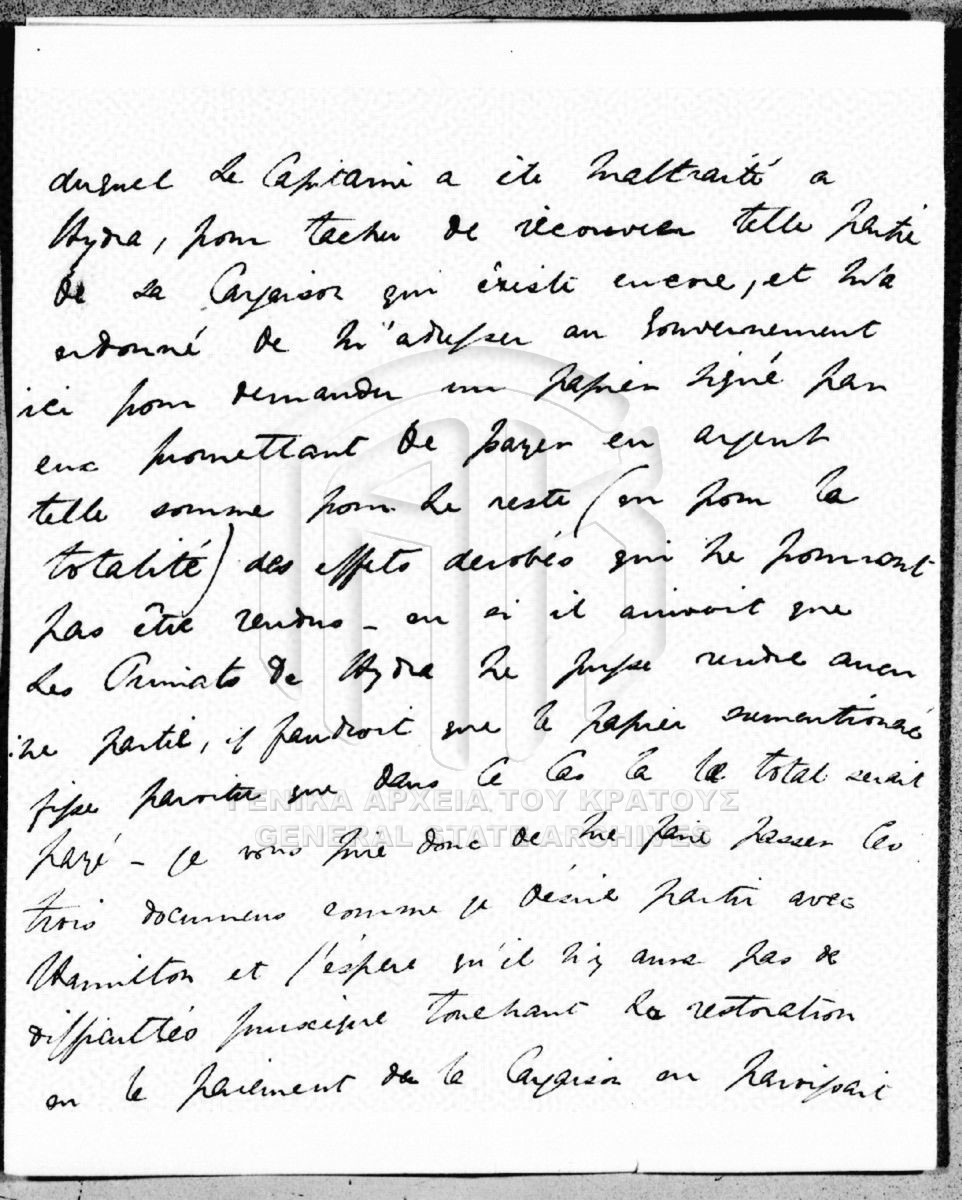 duquel le Capitaine a été maltraité a
Hydra, pour tacher de récouvrer telle partie
de sa Cargaison qui existe encore, et m'a
ordonné de m'adresser au Gouvernement
ici pour demander un papier signé par
eux promettant de payer en argent
telle somme pour le reste (ou pour la
totalité) des effets derobés qui ne pourront
pas être rendus - ou si il arrivoit que
les Primats de Hydra ne pusse rendre aucu
ne partie, il faudroit que le papier sumentionné
fisse paroitre que dans ce Cas la le total serait
payé - je vous prie donc de me faire passer les
trois documens comme je désire partir avec
Hamilton et j'éspere qu'il n'y aura pas de
difficultés puisque touchant la restoration
ou le paiement de la Cargaison on paroissait
ΓΕΝΙΚΑ ΑΡΧΕΙΑ ΤΟΥ ΚΡΑΤΟΥΣ
GENERAL STATE ARCHIVES